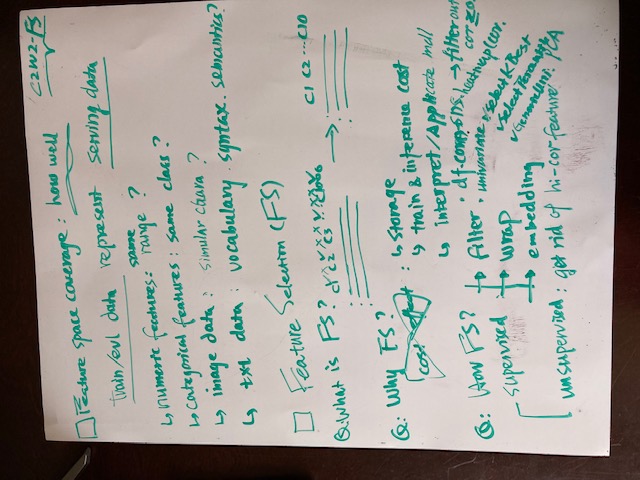 C2W2-FS
□ Feature space coverage: how well
train/evl data represent serving data
↳ numeric features: same range ?
↳ categorical features: same class?
↳ image data: simular chara ?
↳ txt data: vocabulary. syntax. semantics?
□ Feature Selection (FS)
Q: What is FS? C1 C2 C3 ... C1000 → C1 C2 ... C10
Q: Why FS? : ↳ storage
cost effect ↳ train & inference cost
↳ interpret/
Q: How FS? → filter : df.corr → filter out
supervised • univariate ✓ Select K Best
→ wrap ✓ Select Percentile
→ embedding
unsupervised: get rid of hi-cor feature! PCA